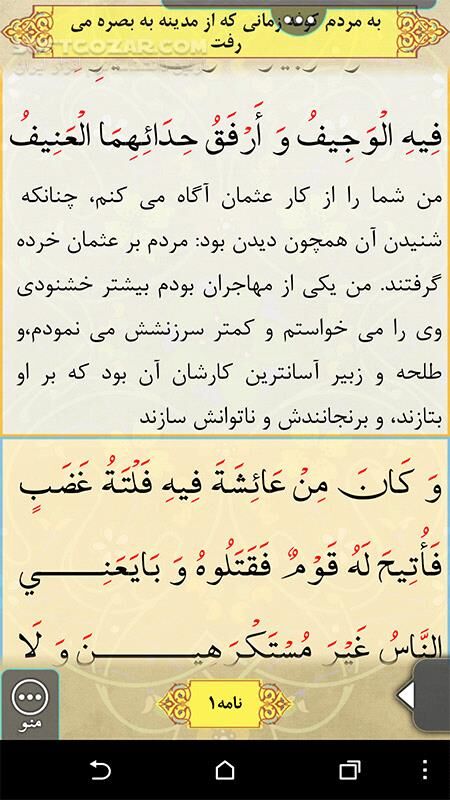 به مردم کوفه زمانی که از مدینه به بصره می
رفت
SOFTGOZAR.COM
فِیهِ الْوَجِیفُ وَ أَرْفَقُ حِدَائِهِمَا الْعَنِیفُ
من شما را از کار عثمان آگاه می کنم، چنانکه
شنیدن آن همچون دیدن بود: مردم بر عثمان خرده
گرفتند. من یکی از مهاجران بودم بیشتر خشنودی
وی را می خواستم و کمتر سرزنشش می نمودم،و
طلحه و زبیر آسانترین کارشان آن بود که بر او
بتازند، و برنجانندش و ناتوانش سازند
وَ کَانَ مِنْ عَائِشَةَ فِیهِ فَلْتَةُ غَضَبٍ
فَأُتِیحَ لَهُ قَوْمٌ فَقَتَلُوهُ وَ بَایَعَنِی
النَّاسُ غَیْرَ مُسْتَکْرَهِینَ وَ لَا
نامه۱
منو